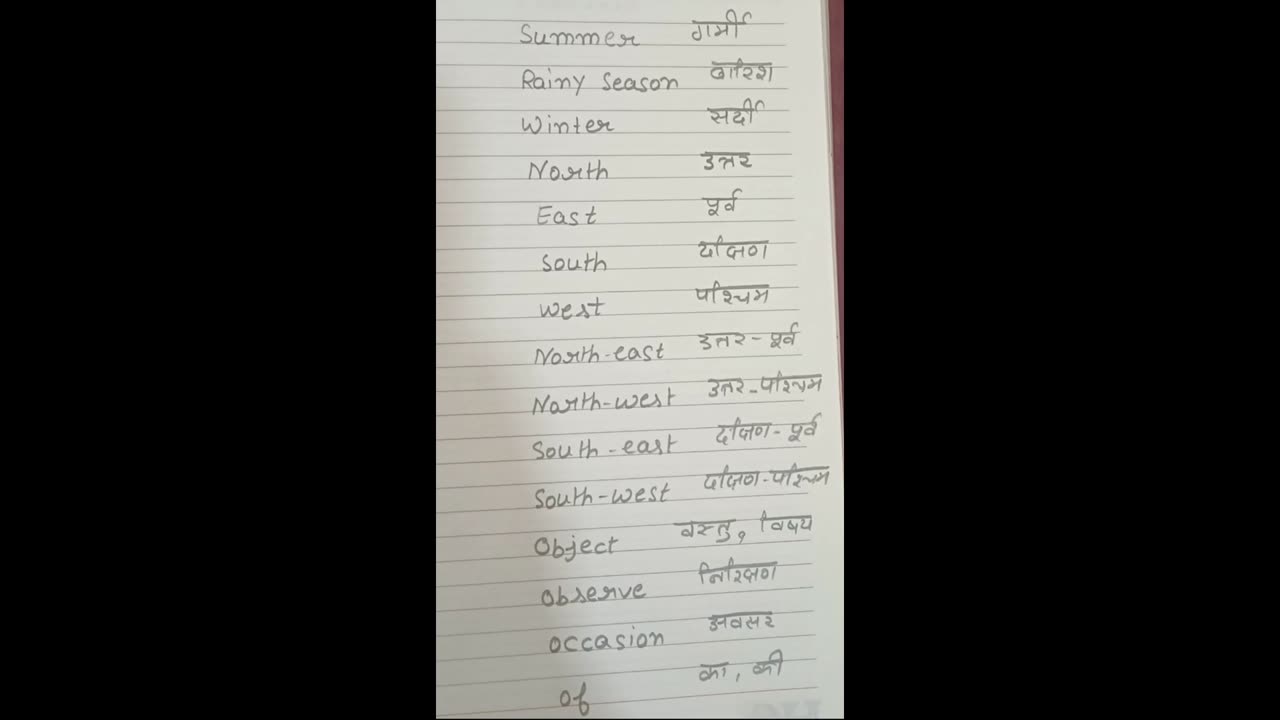 Summer गर्मी
Rainy season बारिश
Winter सर्दी
North उत्तर
East पूर्व
South दक्षिण
west पश्चिम
North-east उत्तर-पूर्व
North-west उत्तर-पश्चिम
South-east दक्षिण-पूर्व
South-west दक्षिण-पश्चिम
Object वस्तु, विषय
observe निरिक्षण
occasion अवसर
of का, की